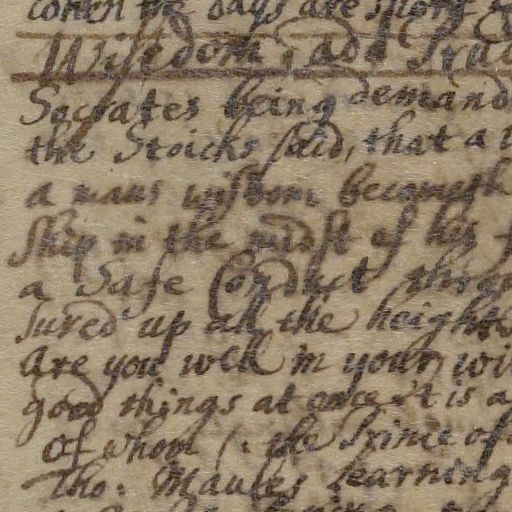 when the days are short
Wisedom, and
Socrates being demand
the Stoicks said, that a
a mans wisdom becometh
ship in the midst of his
a Safe Conduct throu
sured up all the heights
Are you well in your wi
good things at once it is a
Of whom (. the Prince of
Tho. Maules Learning